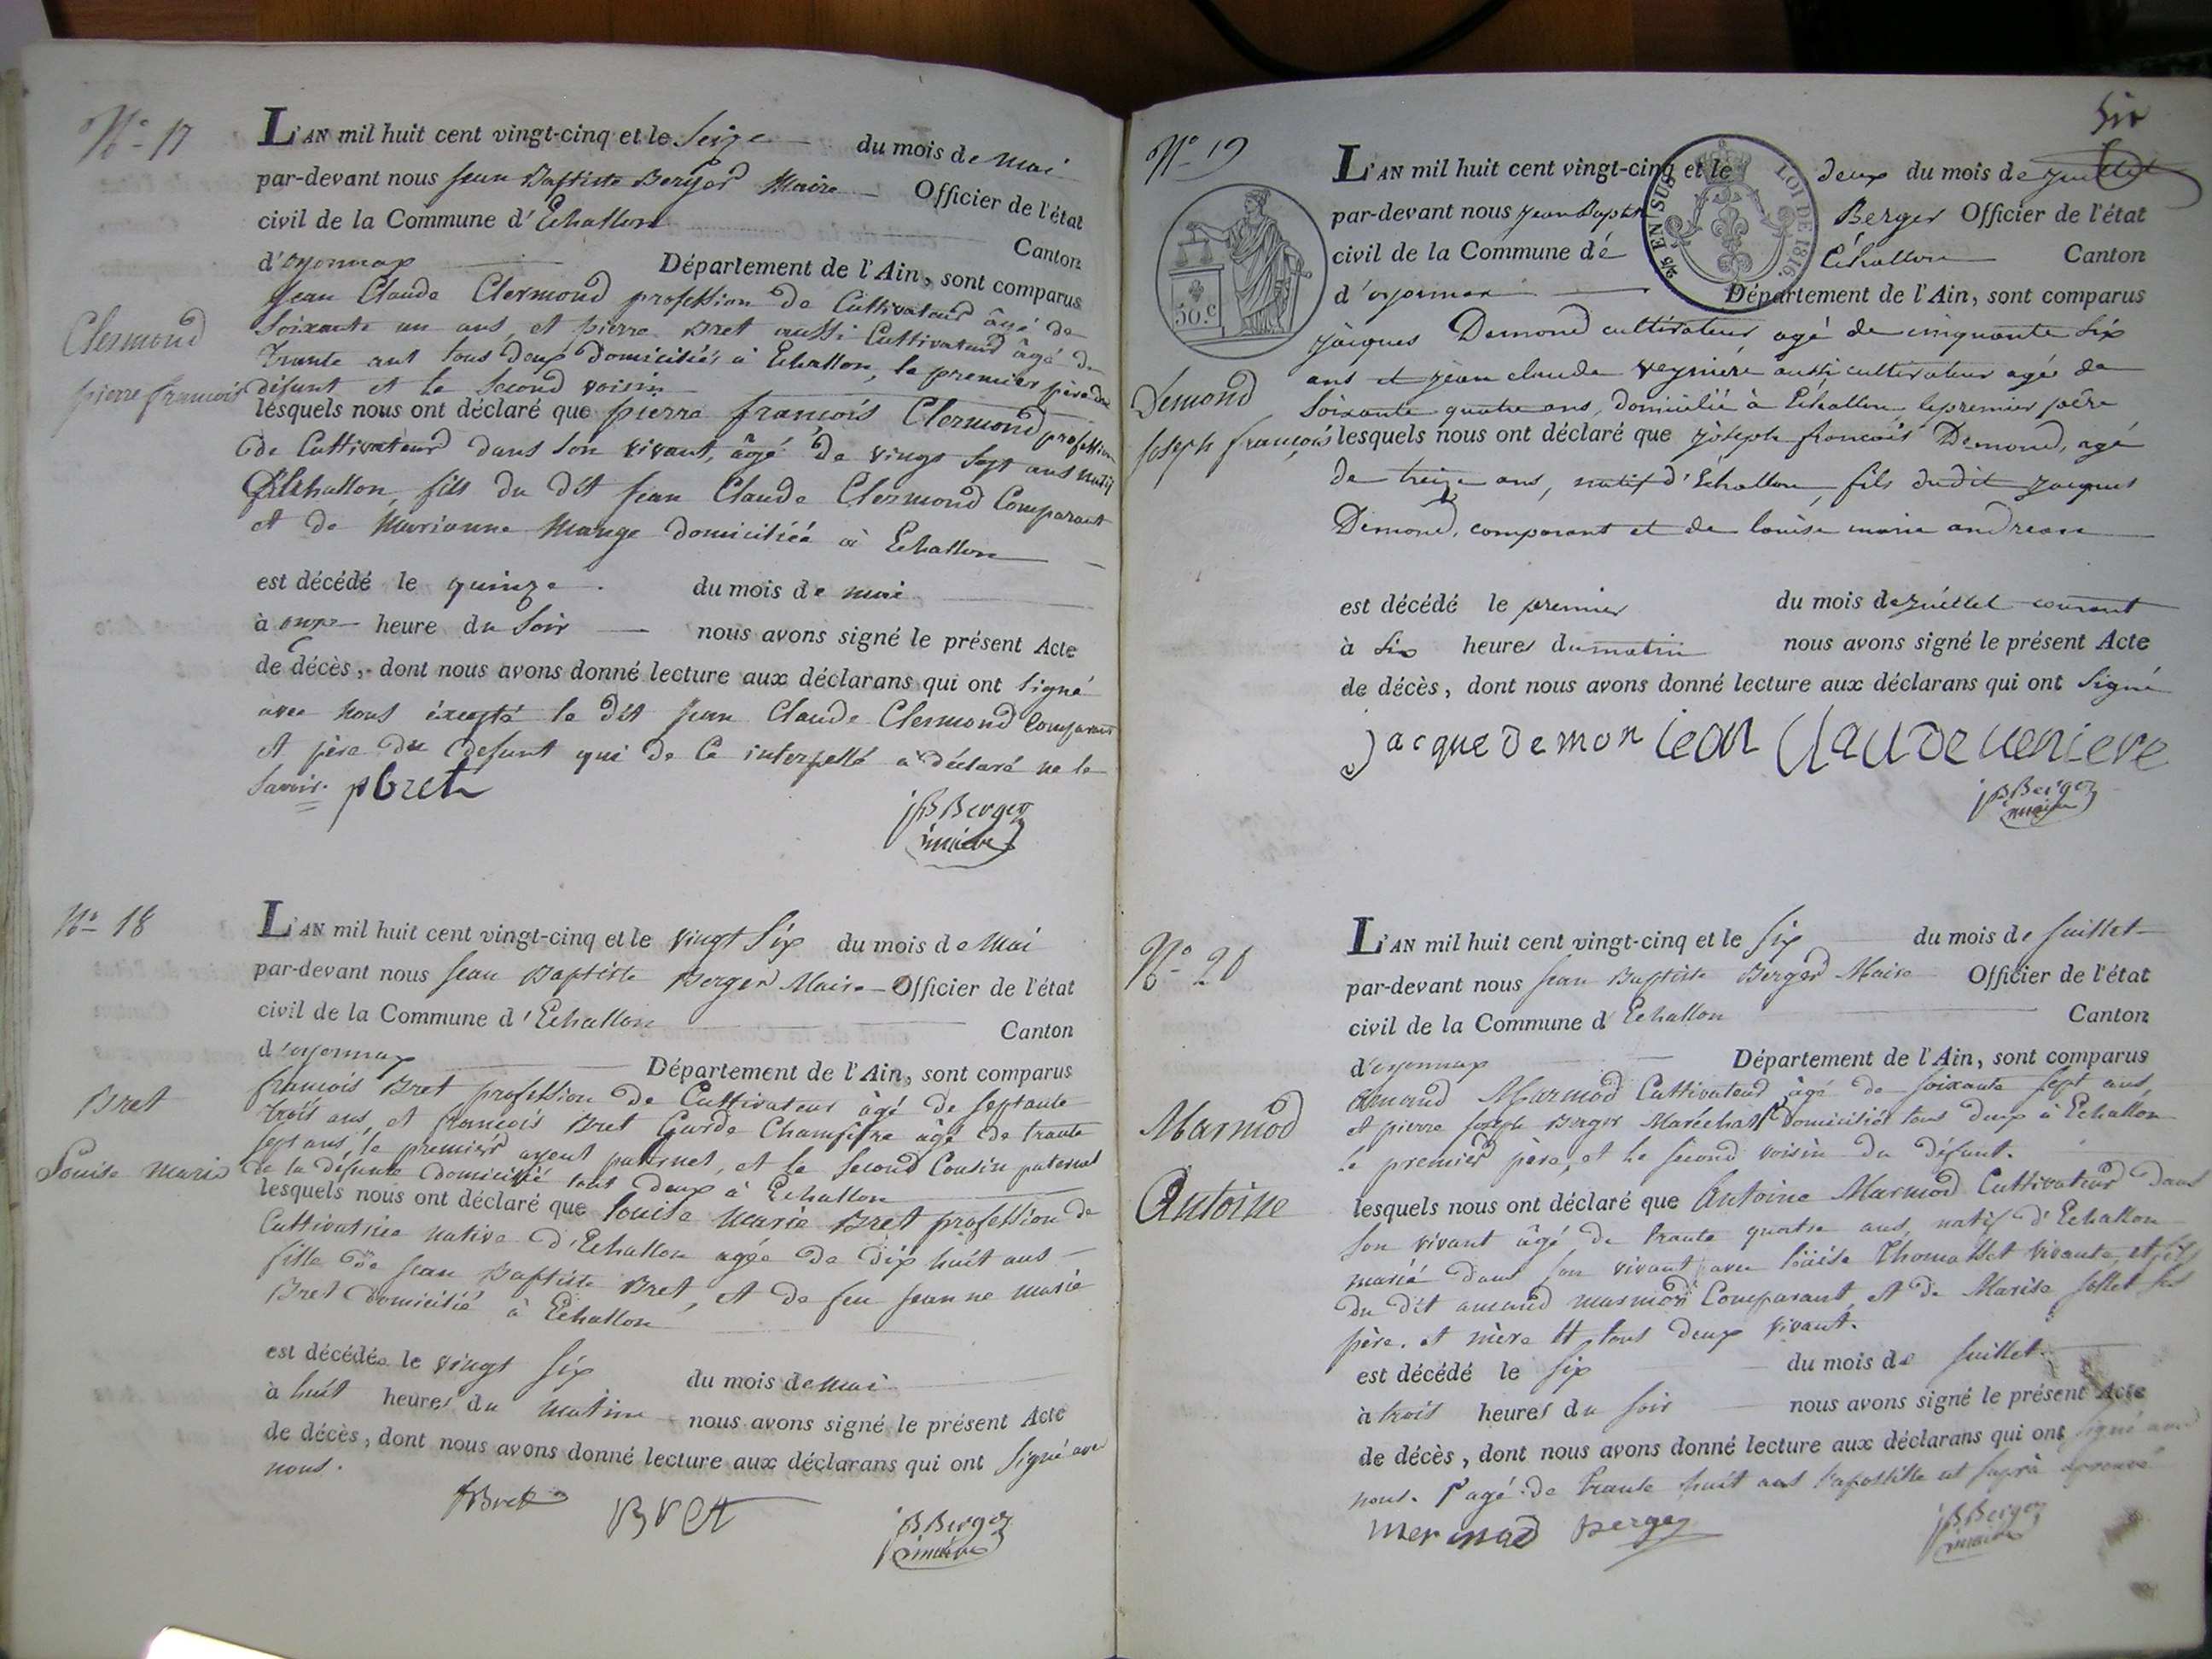 N.° 17
L'AN mil huit cent vingt-cinq et le Seize du mois de mai
par-devant nous Jean Baptiste Berger Maire Officier de l'état
civil de la Commune d'Echallon
Canton
d'oyonnax Département de l'Ain, sont comparus
Jean Claude Clermond profession de Cultivateur âgé de
Clermond
Soixante un ans, et pierre Bret aussi Cultivateur âgé de
trante ans tous deux domiciliés à Echallon, le premier père du
pierre francois
défunt et le Second voisin
lesquels nous ont déclaré que pierre francois Clermond profession
de Cultivateur dans Son vivant, âgé de vingt Sept ans natif
d'Echallon, fils du dit Jean Claude Clermond Comparant
et de Marianne Mange domiciliéé à Echallon
est décédé le quinze du mois de mai
à onze heure du Soir nous avons signé le présent Acte
de décès, dont nous avons donné lecture aux déclarans qui ont Signé
avec nous éxcepté le dit Jean Claude Clermond Comparant
et père du défunt qui de Ce interpellé a déclaré ne le
Savoir. pbret
JBBerger
maire
N.° 18
L'AN mil huit cent vingt-cinq et le vingt Six du mois de Mai
par-devant nous Jean Baptiste Berger Maire Officier de l'état
civil de la Commune d'Echallon
Canton
d'oyonnax Département de l'Ain, sont comparus
Bret
francois Bret profession de Cultivateur âgé de Septante
trois ans, et francois Bret Garde Champêtre âgé de trante
Sept ans, le premier ayeul paternel, et le Second Cousin paternel
Louise Marie
de la défunte domicilié tout deux à Echallon
lesquels nous ont déclaré que louise Marie Bret profession de
Cultivatrice native d'Echallon agée de dix huit ans
fille de Jean Baptiste Bret, et de feu Jeanne Marie
Bret domicilié à Echallon
est décédée le vingt Six du mois de Mai
à huit heures du Matin nous avons signé le présent Acte
de décès, dont nous avons donné lecture aux déclarans qui ont Signé avec
nous.
fBret Bret
JBBerger
maire
Six
N.° 19
L'AN mil huit cent vingt-cinq et le deux du mois de juillet
par-devant nous jean Bapte Berger Officier de l'état
civil de la Commune dé Échallon Canton
d'oyonnax Département de l'Ain, sont comparus
EN SUS
LOI DE 1816.
50.c
jacques Demond cultivateur agé de cinquante six
ans et jean claude veyniére aussi cultivateur agé de
Demond
Soixante quatre ans, domicilié à Echallon, le premier père
joseph françois
lesquels nous ont déclaré que joseph francois Demond, agé
de treize ans, natif d'Échallon, fils dudit jacques
Demond, comparant et de louise marie andrean
est décédé le premier du mois de juillet courant
à Six heures du matin nous avons signé le présent Acte
de décès, dont nous avons donné lecture aux déclarans qui ont Signé
jacque demon jean Claude veniere
JBBerger
maire
N.° 20
L'AN mil huit cent vingt-cinq et le Six du mois de Juillet
par-devant nous Jean Baptiste Berger Maire Officier de l'état
civil de la Commune d'Echallon Canton
d'oyonnax Département de l'Ain, sont comparus
Marmod
amand Marmod Cultivateur âgé de Soixante Sept ans,
et pierre Joseph Berger Maréchal domiciliés tous deux à Echallon
le premier père, et le Second voisin du défunt.
Antoine
lesquels nous ont déclaré que Antoine Marmod Cultivateur dans
Son vivant âgé de trante quatre ans, natif d'Echallon
marié dans Son vivant avec louise Thomasset vivante, et fils
du dit amand marmod Comparant, et de Marise Jollet Ses
père et mère tous deux vivant.
est décédé le Six du mois de Juillet
à trois heures du Soir nous avons signé le présent Acte
de décès, dont nous avons donné lecture aux déclarans qui ont Signé avec
nous. agé de trante huit ans l'apostille est Suprà aprouvé
mermod Berger
JBBerger
maire